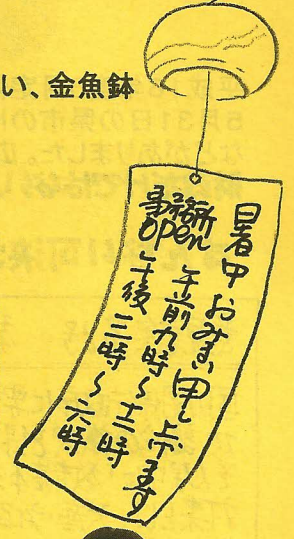 い、金魚鉢
暑中おみまい申し上げます
事務所
open
午前九時〜十二時
午後三時〜六時